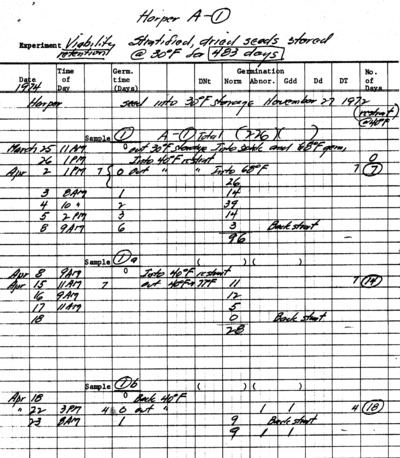 Harper A-①
Experiment Viability Stratified, dried seeds stored
retention @ 30°F for 483 days
Date Time of Day Germ. time (Days) Germination DNt Norm Abnor. Gdd Dd DT No. of Days
1974
Harper seed into 30°F storage November 27 1972
restrat @ 40°F
Sample ① A-① Total (226)( )
March 25 11AM 0 out 30°F storage Into settle and 68°F germ.
26 1PM Into 40°F restrat 0
Apr 2 1PM 7 0 out " " Into 68°F 7 ⑦
26
3 8AM 1 14
4 10 " 2 39
5 2PM 3 14
8 9AM 6 3 Back strat
96
Sample ① a ( ) ( )
Apr 8 9AM 0 Into 40°F restrat
Apr 15 11AM 7 out 40°F→77°F 11 7 ⑭
16 9AM 12
17 11AM 5
18 0 Back strat
28
Sample ① b ( ) ( )
Apr 18 0 Back 40°F
" 22 3PM 4 0 out " 1 1 4 ⑱
23 8AM 1 9 Back strat
9 1 1